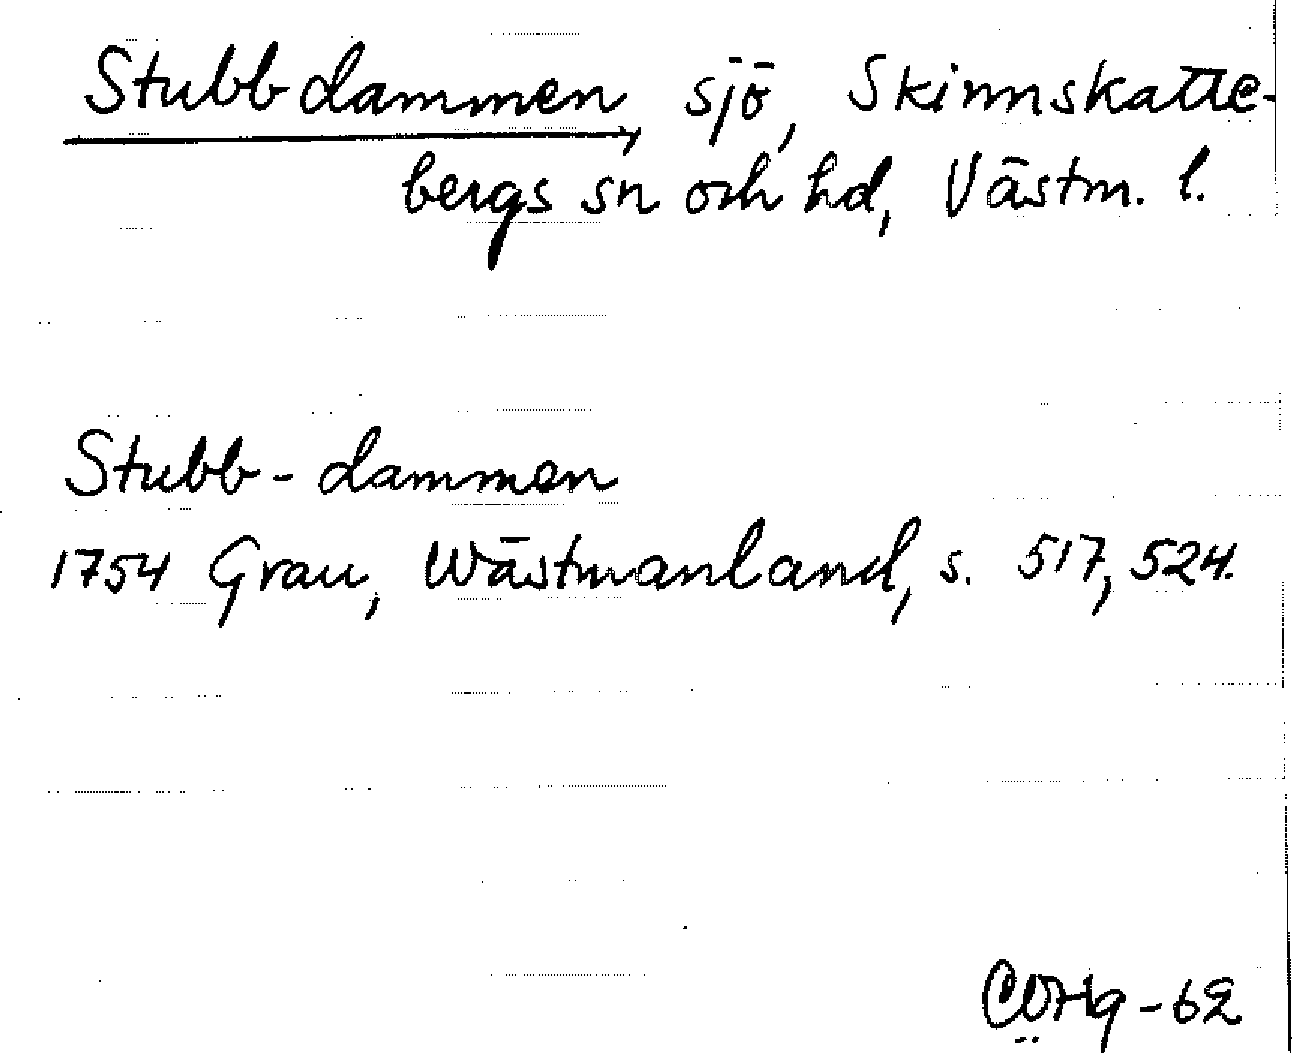 Stubbdammen, sjö, Skinnskatte-
bergs sn och hd, Västm. l.
Stubb-dammen
1754 Grau, Wästmanland, s. 517, 524.
-62